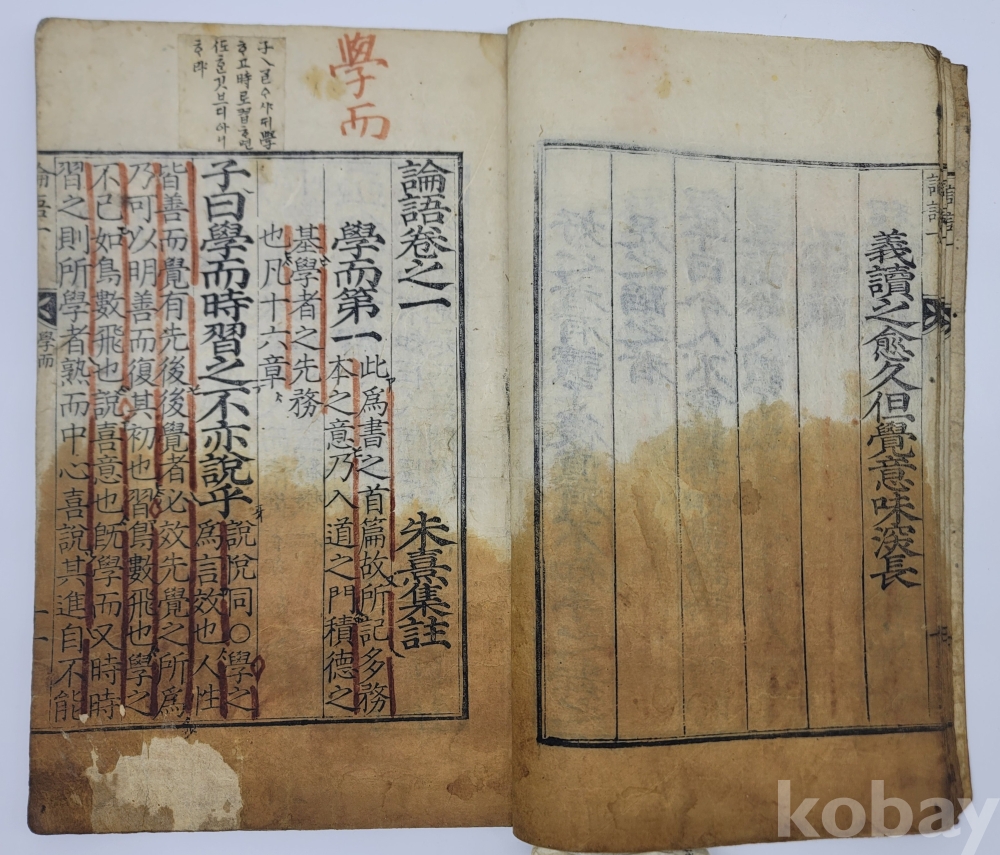 義讀之愈久但覺意味深長
學而
論語卷之一 朱熹集註
學而第一 此爲書之首篇故所記多務
本之意乃入道之門積德之
基學者之先務
也凡十六章
子曰學而時習之不亦說乎 說悅同○學之
爲言效也人性
皆善而覺有先後後覺者必效先覺之所爲
乃可以明善而復其初也習鳥數飛也學之
不已如鳥數飛也說喜意也旣學而又時時
習之則所學者熟而中心喜說其進自不能
學而
kobay